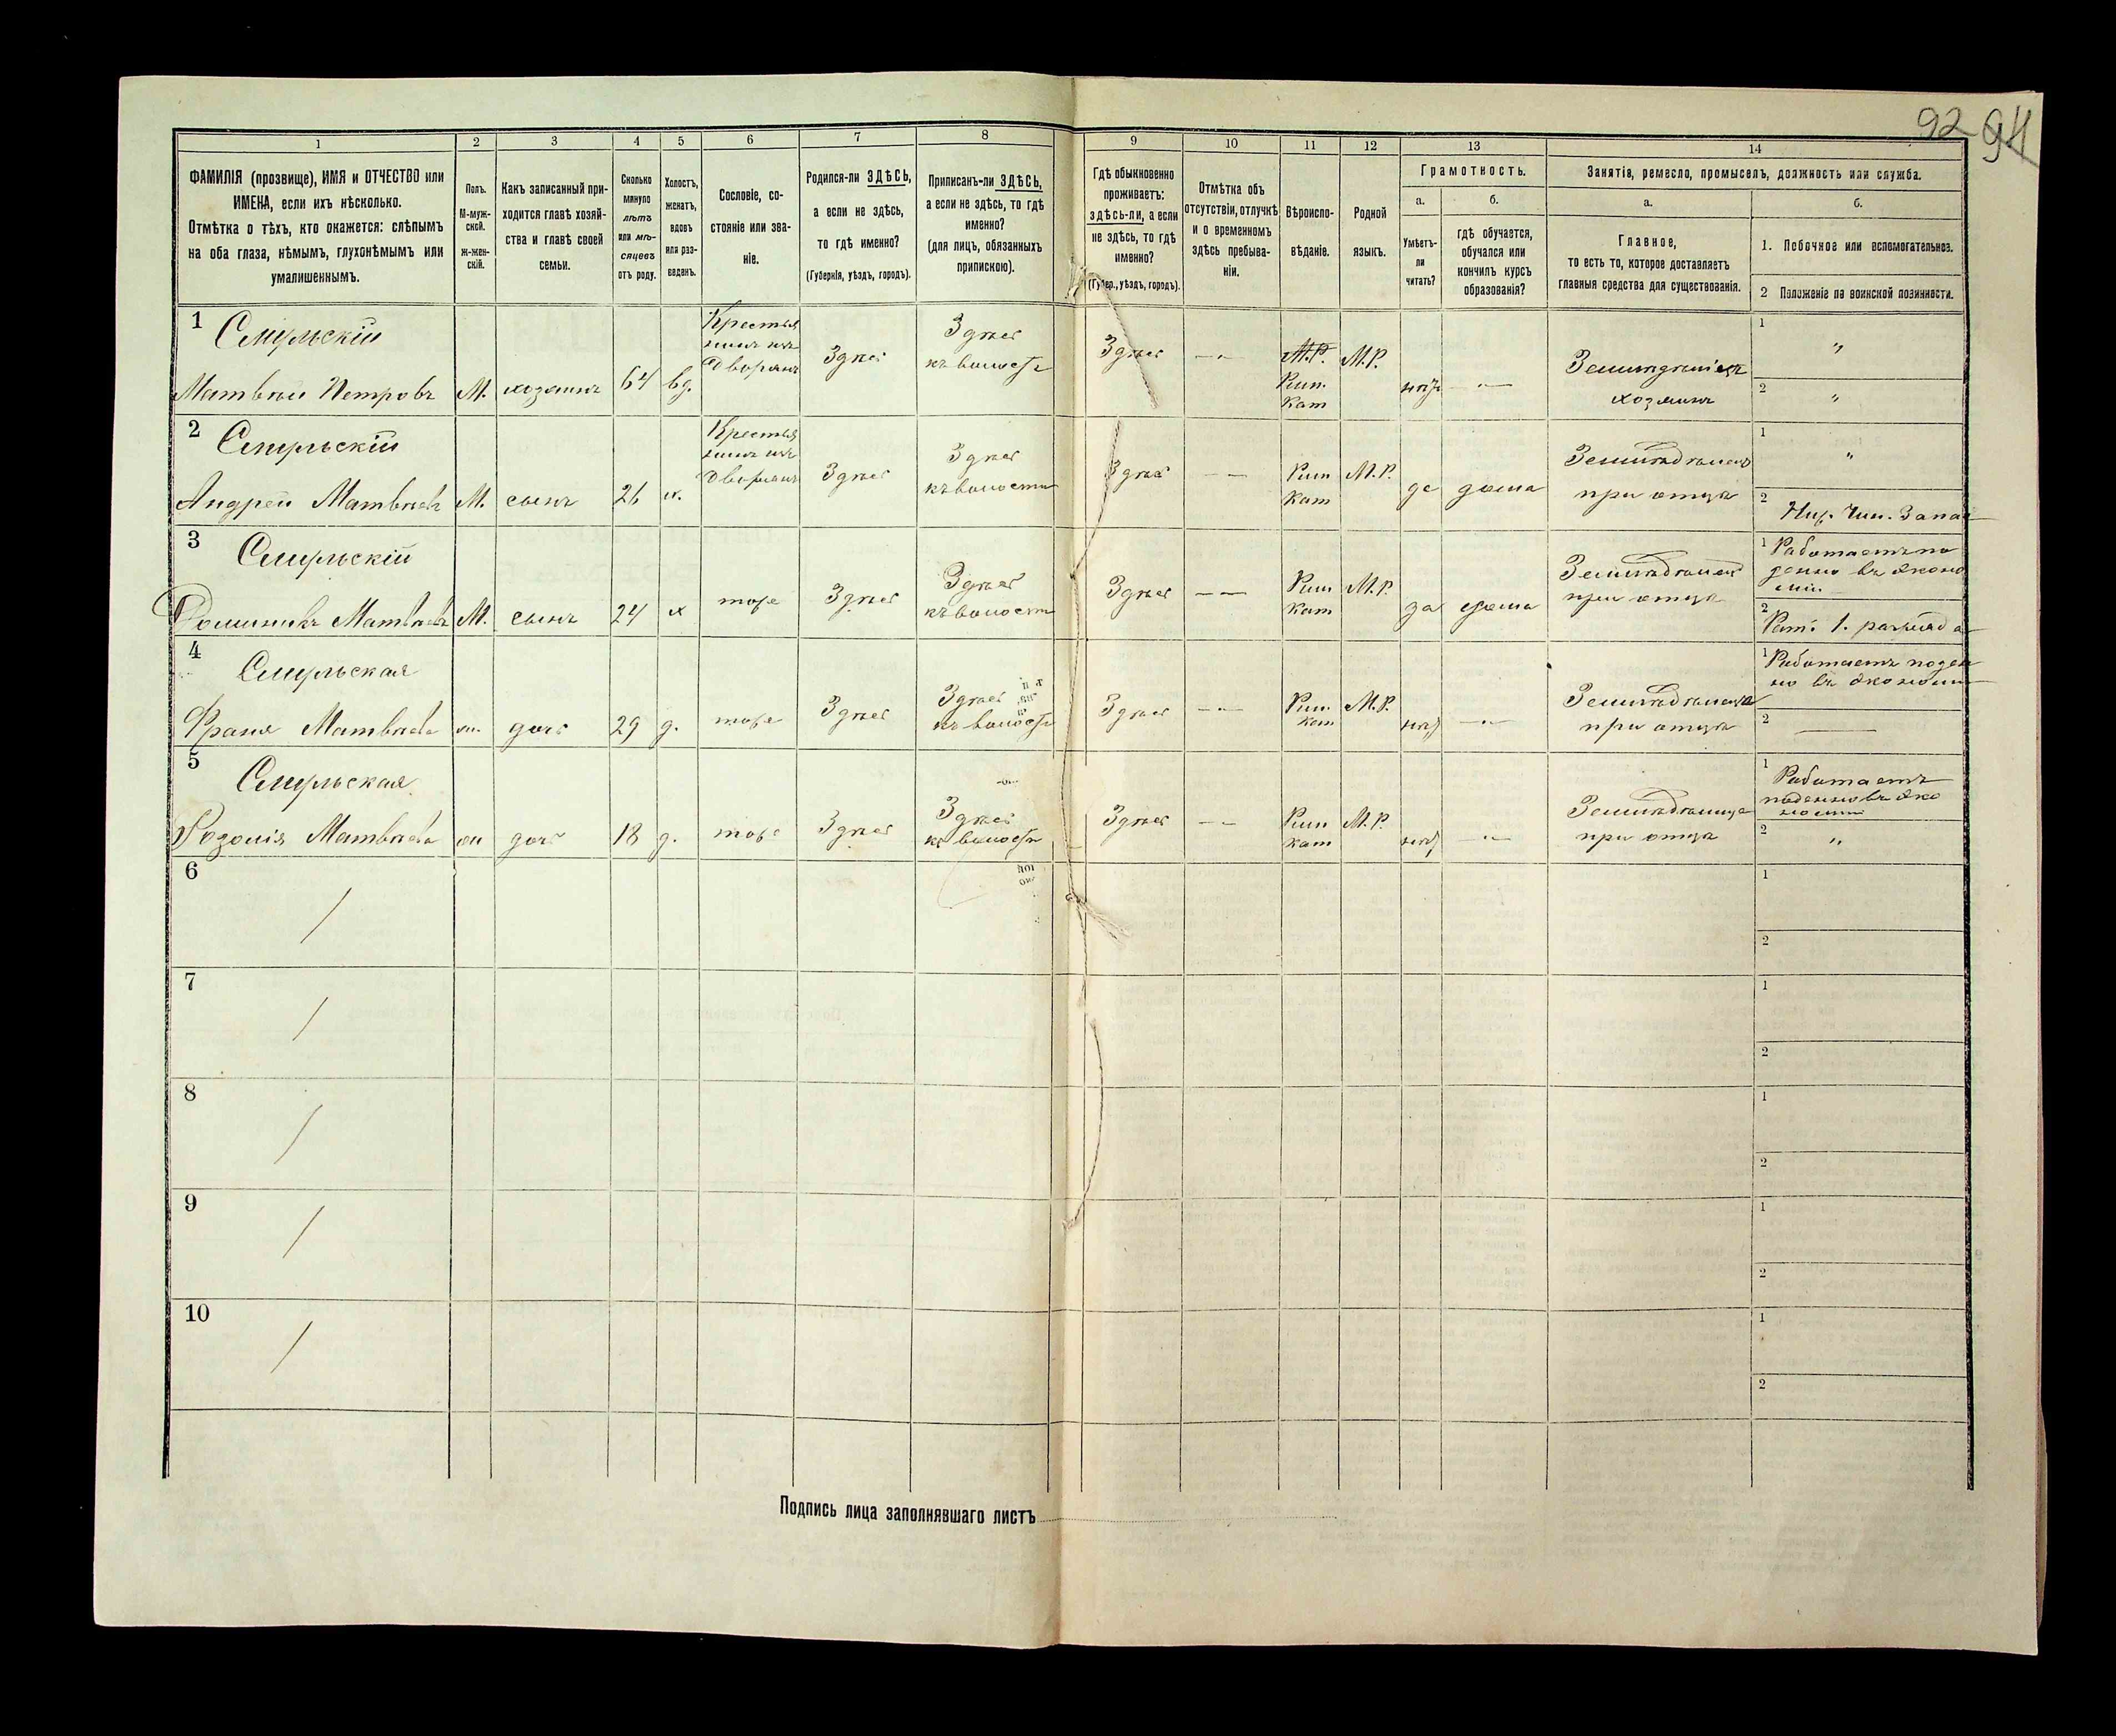 92 94
1 2 3 4 5 6 7 8 9 10 11 12 13 14
ФАМИЛІЯ (прозвище), ИМЯ и ОТЧЕСТВО или
ИМЕНА, если ихъ нѣсколько.
Отмѣтка о тѣхъ, кто окажется: слѣпымъ
на оба глаза, нѣмымъ, глухонѣмымъ или
умалишеннымъ.
Полъ.
М-муж-
ской.
Ж-жен-
скій.
Какъ записанный при-
ходится главѣ хозяй-
ства и главѣ своей
семьи.
Сколько
минуло
лѣтъ
или мѣ-
сяцевъ
отъ роду.
Холостъ,
женатъ,
вдовъ
или раз-
веденъ.
Сословіе, со-
стояніе или зва-
ніе.
Родился-ли ЗДѢСЬ,
а если не здѣсь,
то гдѣ именно?
(Губернія, уѣздъ, городъ).
Приписанъ-ли ЗДѢСЬ,
а если не здѣсь, то гдѣ
именно?
(для лицъ, обязанныхъ
припискою).
Гдѣ обыкновенно
проживаетъ:
здѣсь-ли, а если
не здѣсь, то гдѣ
именно?
(Губер., уѣздъ, городъ).
Отмѣтка объ
отсутствіи, отлучкѣ
и о временномъ
здѣсь пребыва-
ніи.
Вѣроиспо-
вѣданіе.
Родной
языкъ.
Грамотность.
а.
Умѣетъ-
ли
читать?
б.
гдѣ обучается,
обучался или
кончилъ курсъ
образованія?
Занятіе, ремесло, промыселъ, должность или служба.
а.
Главное,
то есть то, которое доставляетъ
главныя средства для существованія.
б.
1. Побочное или вспомогательное.
2 Положеніе по воинской повинности.
1
Матвѣй Петровъ М. хозяинъ 64 вд.
Крестья
нинъ изъ
дворянъ
Здѣсь
Здѣсь
къ волости
Здѣсь
М.Р.
Рим.
Кат
М.Р. нѣтъ
хозяинъ
1 "
2 "
2
Андрей Матвѣевъ М. сынъ 26 х.
Крестья
нинъ изъ
дворянъ
Здѣсь
Здѣсь
къ волости
Здѣсь
Рим
Кат
М.Р. да дома
при отцѣ
1 "
2 Ниж. Чин. Запас
3
Доминикъ Матвѣевъ М. сынъ 24 х тоже Здѣсь
Здѣсь
къ волости
Здѣсь
Рим
Кат
М.Р. да дома
при отцѣ
1 Работаетъ по
денно въ эконо
міи
2 Рат. 1. разряда
4
Франя Матвѣева ж. дочь 29 д. тоже Здѣсь
Здѣсь
къ волости
Здѣсь
Рим
кат
М.Р. нѣтъ
при отцѣ
1 Работаетъ поден
но въ экономіи
2
5
Розолія Матвѣева ж дочь 18 д. тоже Здѣсь
Здѣсь
къ волости
Здѣсь
Рим
кат
М.Р. нѣтъ
при отцѣ
1 Работаетъ
поденно въ эко
номіи
2 "
6
1
2
7
1
2
8
1
2
9
1
2
10
1
2
Подпись лица заполнявшаго листъ